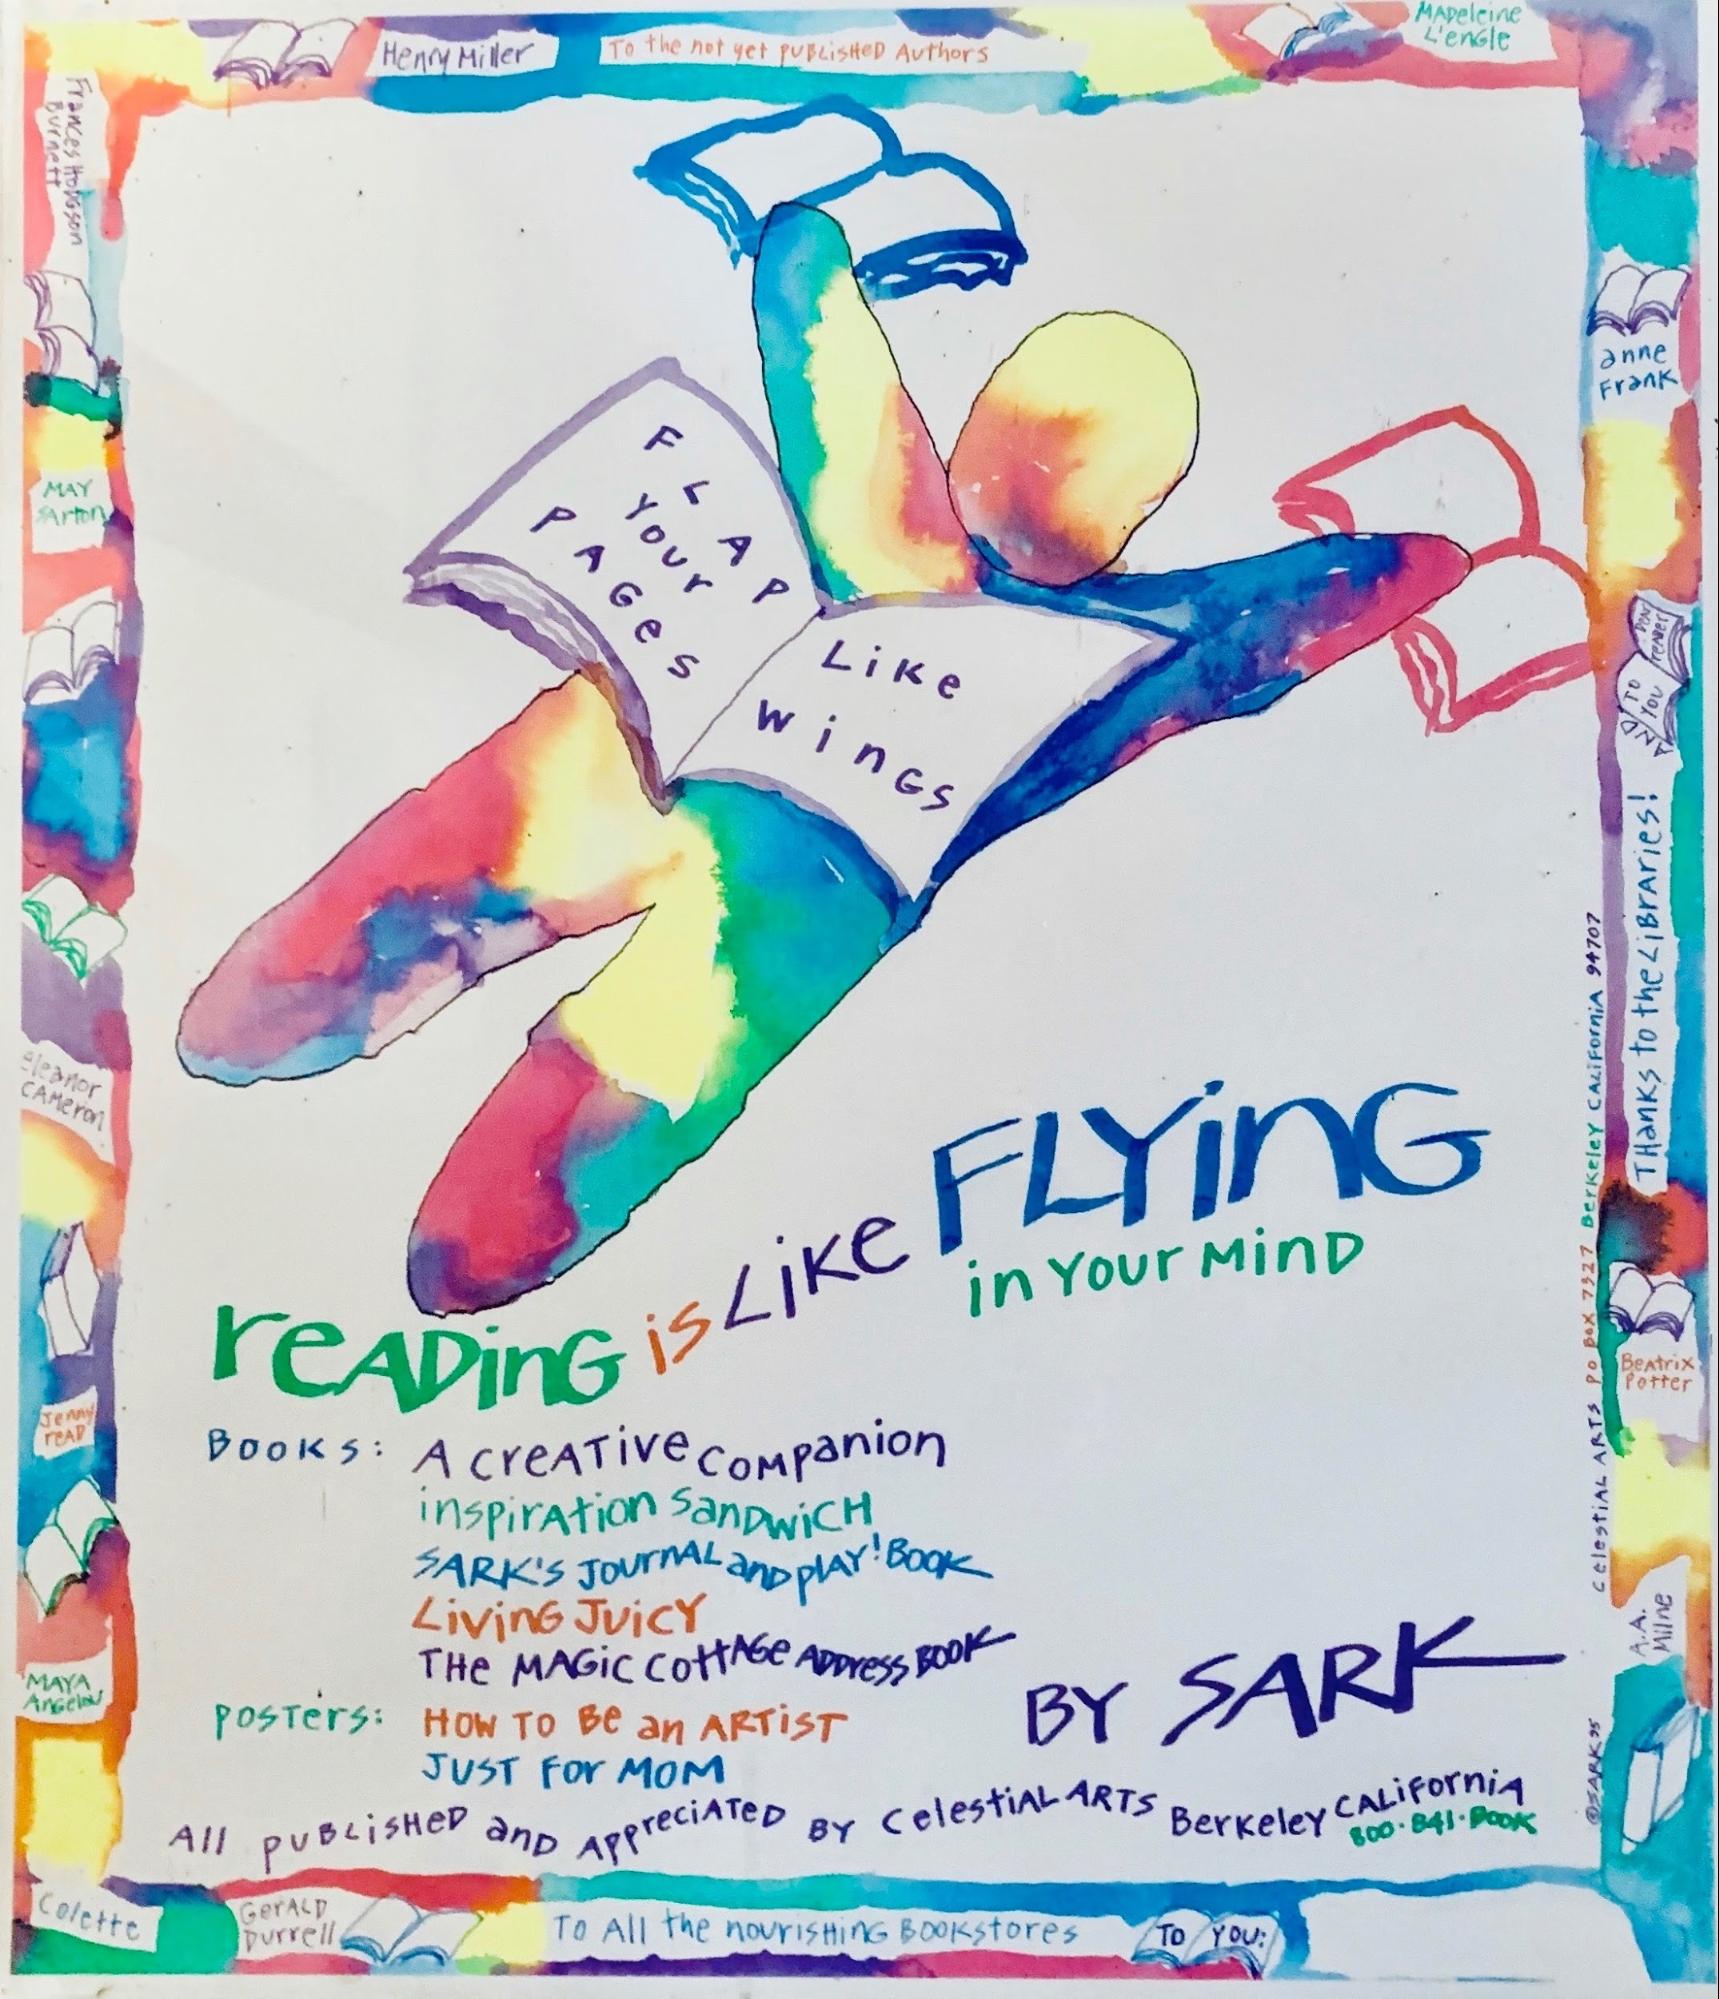 Henry Miller
To the not yet published Authors
Madeleine
L'engle
Frances Hodgson
Burnett
anne
Frank
FLAP
YOUR
PAGES
Like
wings
MAY
SArton
AND TO
YOU
DEAR
READER
THANKS to the LiBraries!
eleanor
CAMeron
reADinG is Like FLYinG
in Your MinD
Jenny
reAD
BeAtrix
Potter
BOOKS: A creATive companion
inspirAtion sanDwiCH
SARK'S JournAL anD pLAY! BOOK
LivinG JuicY
THe MAGic cottAGe ADDress BOOK
MAYA
AnGeLou
POSTers: HOW TO Be an ARTiST
JUST For MOM
BY SARK
A.A.
Milne
CeLestiAL ARTS PO BOX 7327 BerKeLeY CALiFornia 94707
©SARK 95
All puBLisHeD anD AppreciATeD BY CeLestiAL ARTS BerKeLey CALiForniA
800·841·BOOK
Colette
GerALD
Durrell
To All the nourisHinG BOOKstores
TO YOU: